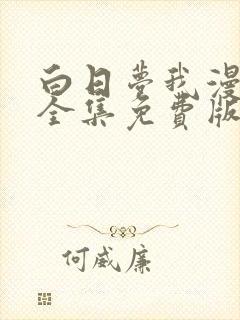 白日梦我漫
全集免费版
何威廉